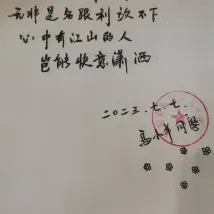 无非是名跟利放不下
心中有江山的人
岂能快意潇洒
二〇二三.七.七.